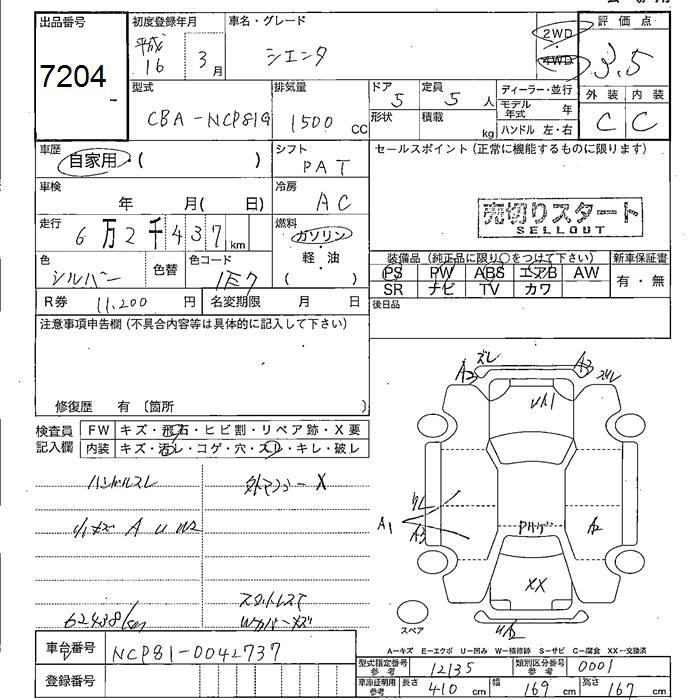 出品番号 初度登録年月 車名・グレード 評価点
7204 平成 16 3月 シエンタ 2WD 4WD 3.5
型式 排気量 ドア 定員 ディーラー・並行 外装 内装
CBA-NCP81G 1500 CC 5 5 人 モデル年式 年 C C
形状 積載 kg ハンドル 左・右
車歴 シフト セールスポイント(正常に機能するものに限ります)
自家用・( ) PAT
車検 冷房
年 月( 日) AC
売切りスタート
SELLOUT
走行 燃料
6万2千437km ガソリン・軽・油 ( )
色 色替 色コード 装備品(純正品に限り○をつけて下さい) 新車保証書
シルバー 1E7 PS PW ABS エアB AW 有・無
SR ナビ TV カワ
R券 11,200 円 名変期限 月 日 後日品
注意事項申告欄(不具合内容等は具体的に記入して下さい)
修復歴 有〔箇所 〕
検査員記入欄 FW キズ・飛石・ヒビ割・リペア跡・X要
内装 キズ・汚レ・コゲ・穴・スレ・キレ・破レ
ハンドルスレ
A U W2
62438km
スタットレスT
Wカバーキズ
ズレ
A2 A3
A1
A2
XX
U2
スペア
A-キズ E-エクボ U-凹み W-補修跡 S-サビ C-腐食 XX-交換済
車台番号 NCP81-0042737
登録番号
型式指定番号参考 12135 類別区分番号参考 0001
車庫証明用参考 長さ 410 cm 幅 169 cm 高さ 167 cm